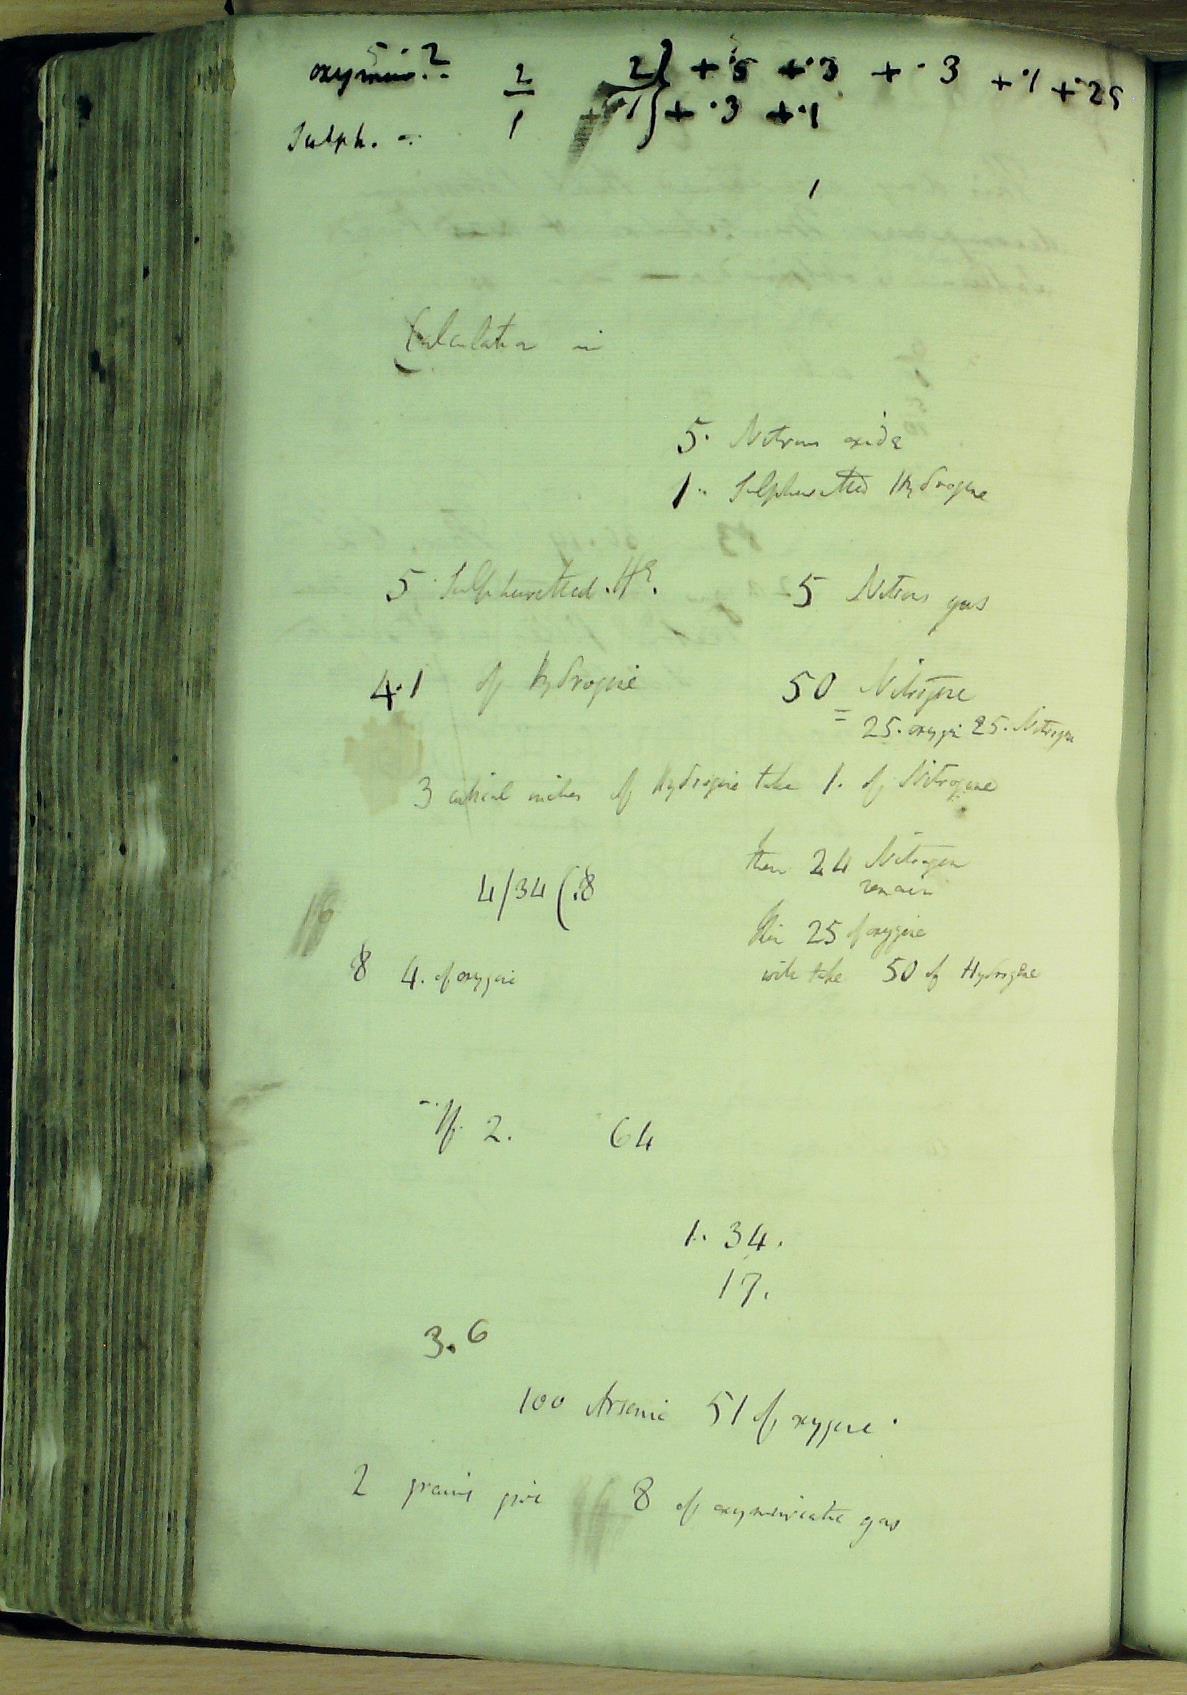 5 2
oxymur. 2 2} + .5 + .3 + .3 + .1 + .25
Sulph. - 1 + .1} + .3 + .1
1
Calculation in
5. Nitrous oxide
1. Sulphuretted Hydrogene
5 Sulphuretted. H e.
5 Nitrous gas
4.1 of Hydrogene
50 Nitrogene
= 25. oxygen 25. Nitrogen
3 cubical inches of Hydrogene take 1. of Nitrogene
then 24 Nitrogen
remain
4/34 (.8
16
the 25 of oxygene
8 4. of oxygene
will take 50 of Hydrogene
If 2. 64
1. 34.
17.
3.6
100 Arsenic 51 of oxygene.
2 grains give 8 of oxymuriatic gas